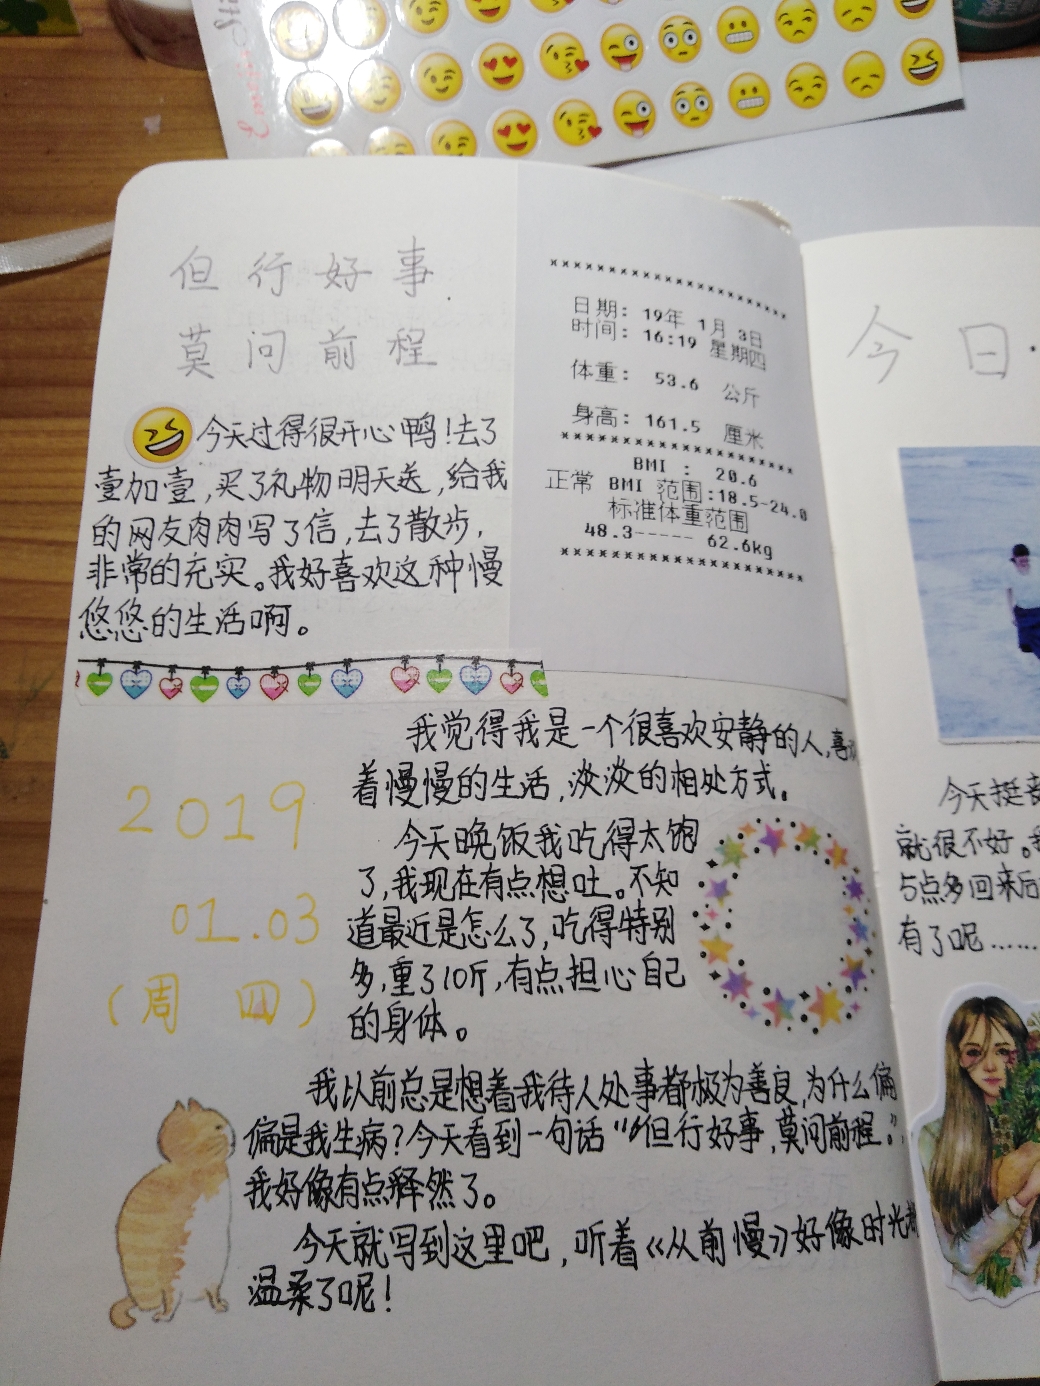 但行好事
莫问前程
今天过得很开心鸭!去了
壹加壹,买了礼物明天送,给我
的网友肉肉写了信,去了散步,
非常的充实。我好喜欢这种慢
悠悠的生活啊。
日期: 19年 1月 3日
时间: 16:19 星期四
体重: 53.6 公斤
身高: 161.5 厘米
BMI : 20.6
正常 BMI 范围:18.5-24.0
标准体重范围
48.3----- 62.6kg
我觉得我是一个很喜欢安静的人,喜
着慢慢的生活,淡淡的相处方式。
2019
01.03
(周四)
今天晚饭我吃得太饱
了,我现在有点想吐。不知
道最近是怎么了,吃得特别
多,重了10斤,有点担心自己
的身体。
我以前总是想着我待人处事都极为善良,为什么偏
偏是我生病?今天看到一句话“但行好事,莫问前程。”
我好像有点释然了。
今天就写到这里吧,听着《从前慢》好像时光
温柔了呢!
今日·
今天挺
就很不好。
点多回来后
有了呢……